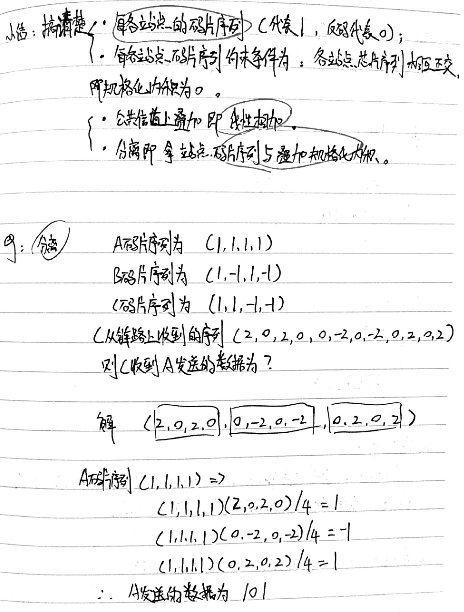 小结：搞清楚 · 每各站点的码片序列（代表1，反码代表0）；
· 每各站点码片序列约束条件为：各站点芯片序列相互正交，
即规格化内积为0。
· 公共信道上叠加即线性相加。
· 分离即拿站点码片序列与叠加规格化内积。
例：分离 A码片序列为 (1,1,1,1)
B码片序列为 (1,-1,1,-1)
C码片序列为 (1,1,-1,-1)
C从链路上收到的序列 (2,0,2,0,0,-2,0,-2,0,2,0,2)
则C收到A发送的数据为？
解 (2,0,2,0),(0,-2,0,-2),(0,2,0,2)
A码片序列 (1,1,1,1) =>
(1,1,1,1)(2,0,2,0)/4=1
(1,1,1,1)(0,-2,0,-2)/4=-1
(1,1,1,1)(0,2,0,2)/4=1
∴ A发送的数据为 101